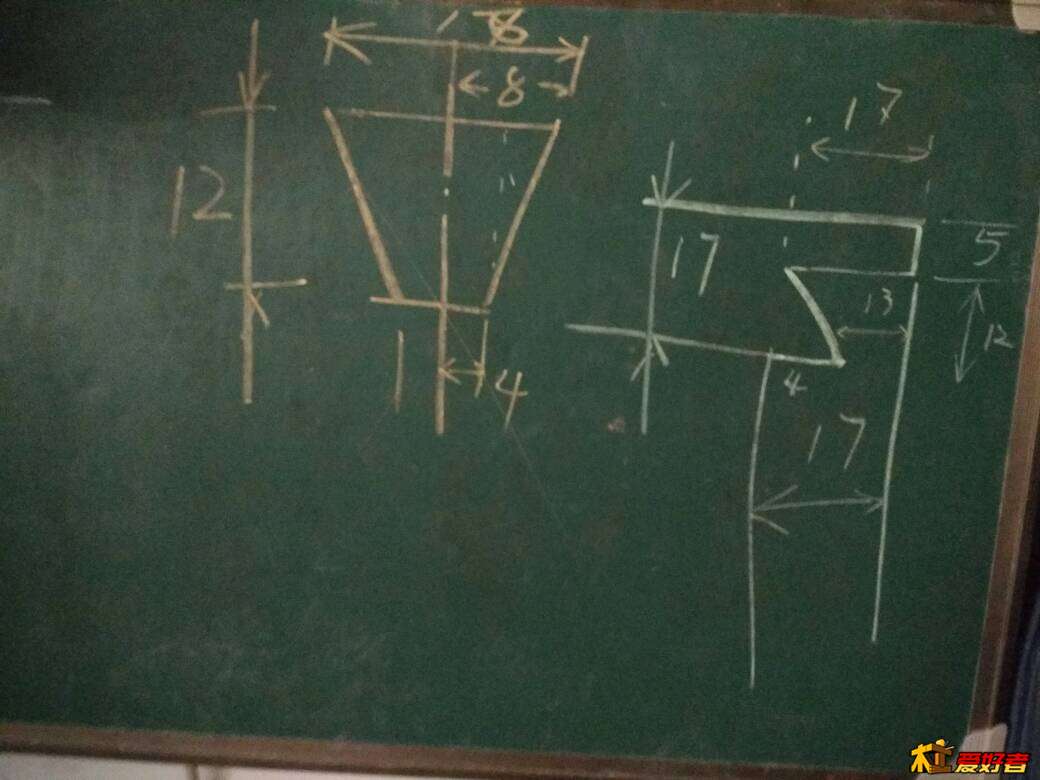 8
17
12
17
5
13
12
4
4
17
木工爱好者